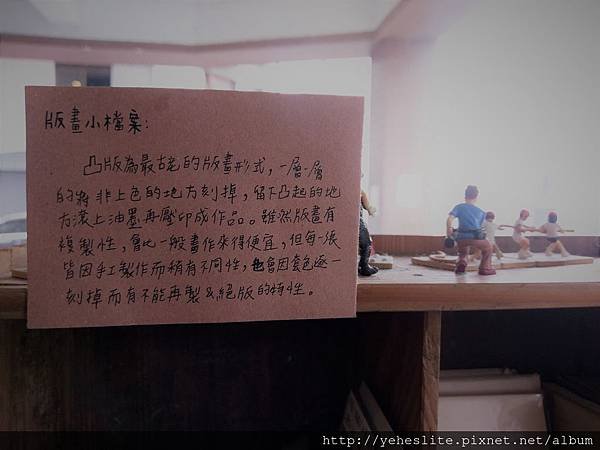 版畫小檔案：
凸版為最古老的版畫形式，一層一層
的將非上色的地方刻掉，留下凸起的地
方滾上油墨再壓印成作品。雖然版畫有
複製性，會比一般畫作來得便宜，但每一張
皆因手工製作而稍有不同性，也會因套色逐一
刻掉而有不能再製&絕版的特性。
http://yeheslite.pixnet.net/album